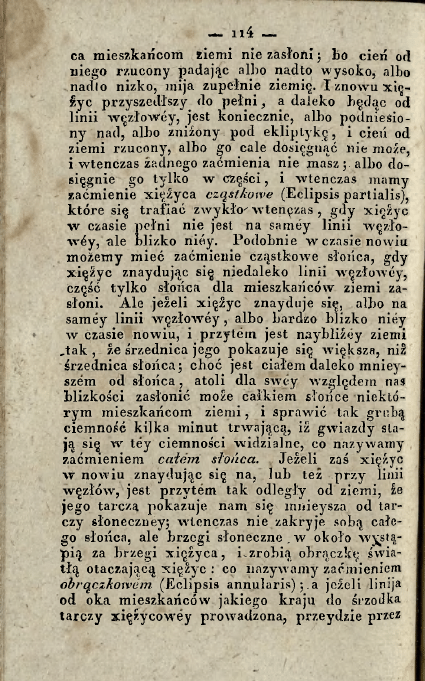 — 114 —
ca mieszkańcom ziemi nie zasłoni; bo cień od
niego rzucony padając albo nadto wysoko, albo
nadto nizko, mija zupełnie ziemię. I znowu xię-
życ przyszedłszy do pełni, a daleko będąc od
linii węzłowéy, jest koniecznie, albo podniesio-
ny nad, albo zniżony pod ekliptykę, i cień od
ziemi rzucony, albo go cale dosięgnąć nie może,
i wtenczas żadnego zaćmienia nie masz; albo do-
sięgnie go tylko w części, i wtenczas mamy
zaćmienie xiężyca cząstkowe (Eclipsis partialis),
które się trafiać zwykło wtenęzas, gdy xiężyc
w czasie pełni nie jest na saméy linii węzło-
wéy, ale blizko niéy. Podobnie w czasie nowiu
możemy mieć zaćmienie cząstkowe słońca, gdy
xiężyc znaydując się niedaleko linii węzłowéy,
część tylko słońca dla mieszkańców ziemi za-
słoni. Ale jeżeli xiężyc znayduje się, albo na
saméy linii węzłowéy, albo bardzo blizko niéy
w czasie nowiu, i przytém jest naybliżéy ziemi
tak, że śrzednica jego pokazuje się większa, niż
śrzednica słońca; choć jest ciałem daleko mniey-
szém od słońca, atoli dla swey względem nas
blizkości zasłonić może całkiem słońce niektó-
rym mieszkańcom ziemi, i sprawić tak grubą
ciemność kilka minut trwającą, iż gwiazdy sta-
ją się w téy ciemności widzialne, co nazywamy
zaćmieniem całém słońca. Jeżeli zaś xiężyc
w nowiu znaydując się na, lub też przy linii
węzłów, jest przytém tak odległy od ziemi, że
jego tarczą pokazuje nam się mnieysza od tar-
czy słoneczney; wtenczas nie zakryje sobą całe-
go słońca, ale brzegi słoneczne w około wystą-
pią za brzegi xiężyca, i zrobią obrączkę świa-
tłą otaczającą xiężyc: co nazywamy zaćmieniem
obrączkowém (Eclipsis annularis); a jeżeli linija
od oka mieszkańców jakiego kraju do śrzodka
tarczy xiężycowéy prowadzona, przeydzie przez